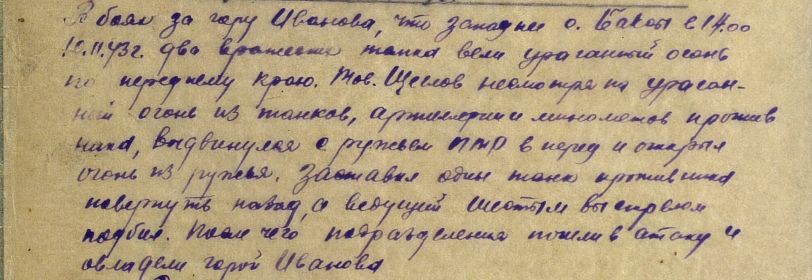 В боях за гору Иванова, что западнее о. Бакы в 14.00
12.11.43г. два вражеских танка вели ураганный огонь
по переднему краю. Тов. Щеглов несмотря на ураган-
ный огонь из танков, артиллерии и минометов против
ника, выдвинулся с ружьем ПТР в перед и открыл
огонь из ружья. Заставил один танк противника
повернуть назад, а ведущий шестым выстрелом
подбил. После чего подразделения пошли в атаку и
овладели горой Иванова